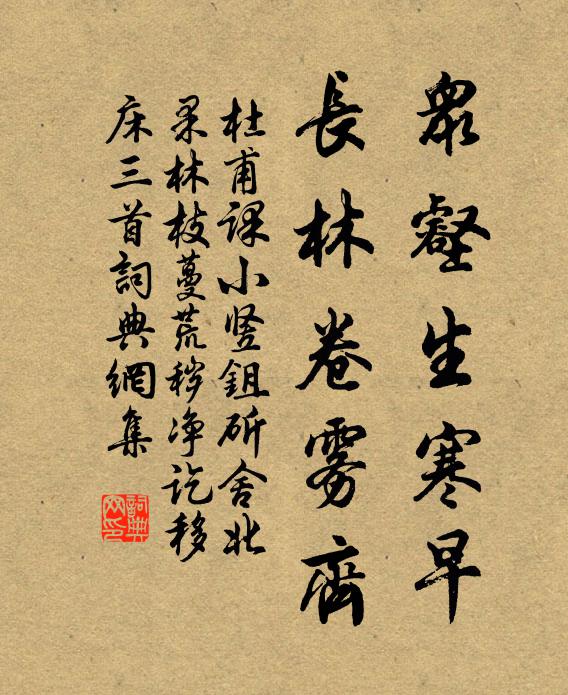 眾壑生寒早
長林卷雾齊
杜甫課小竖鉏斫舍北
果林枝蔓荒秽净讫移
床三首詞典網集
詞典网印